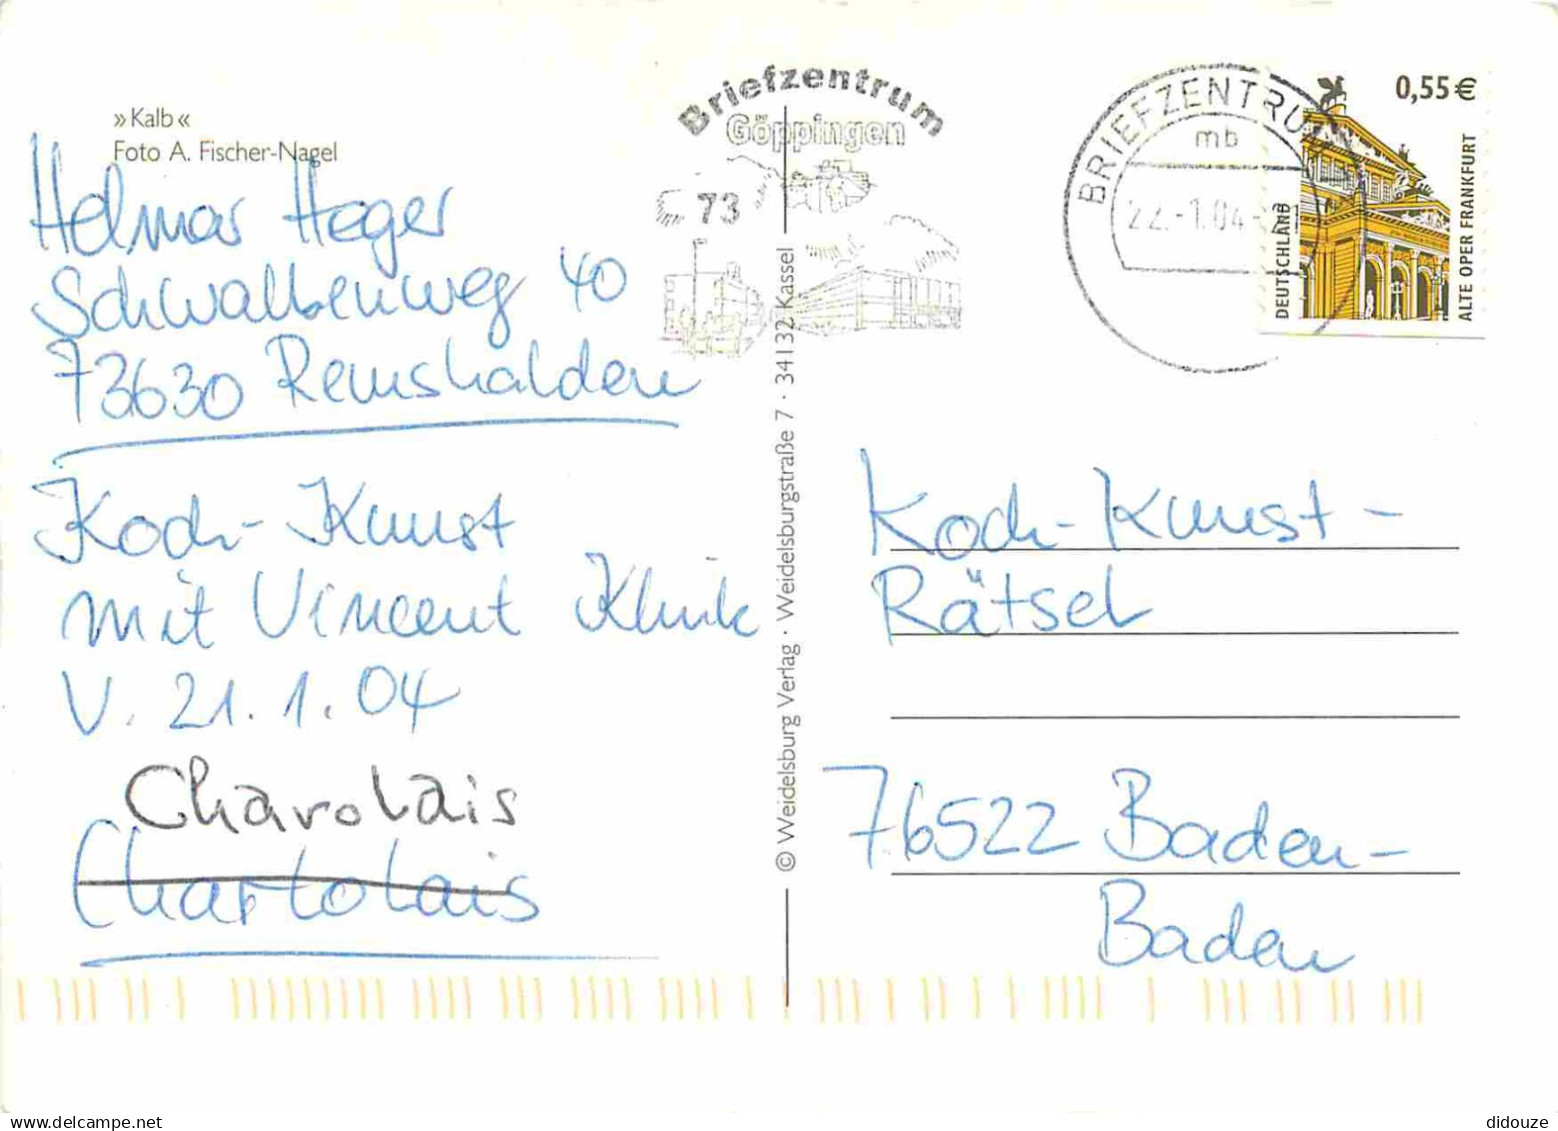 »Kalb«
Foto A. Fischer-Nagel
Helmar Heger
Schwalbenweg 40
73630 Remshalden
Koch-Kunst
mit Vincent Klink
V. 21.1.04
Charolais
Chartolais
© Weidelsburg Verlag · Weidelsburgstraße 7 · 34132 Kassel
Briefzentrum
Göppingen
73
BRIEFZENTRUM
mb
22.-1.04
0,55 €
DEUTSCHLAND
ALTE OPER FRANKFURT
Koch-Kunst-
Rätsel
76522 Baden-
Baden
didouze